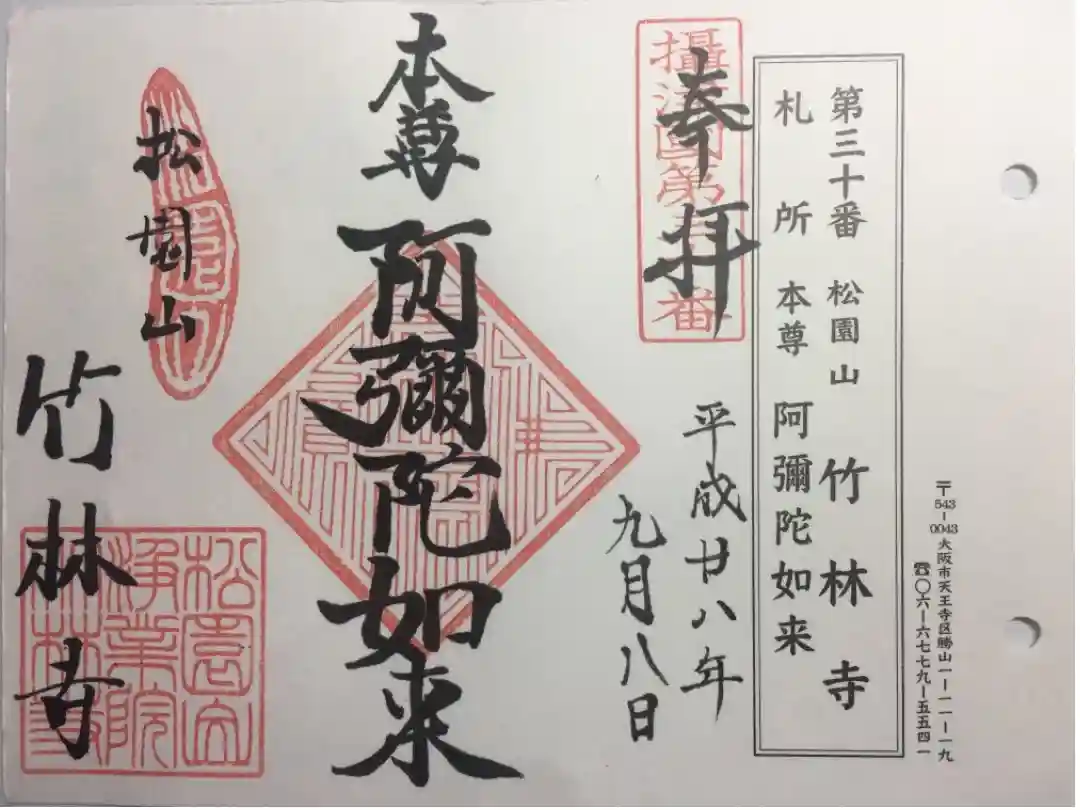 〒543-0043 大阪市天王寺区勝山一-一一-一九
☎〇六-六七七九-五五四一
第三十番 松園山 竹林寺
札所 本尊 阿彌陀如来
奉拝
攝津國第 番
平成廿八年
九月八日
本尊 阿彌陀如来
松園山
松園山
竹林寺
松園山
浄業院
竹林寺